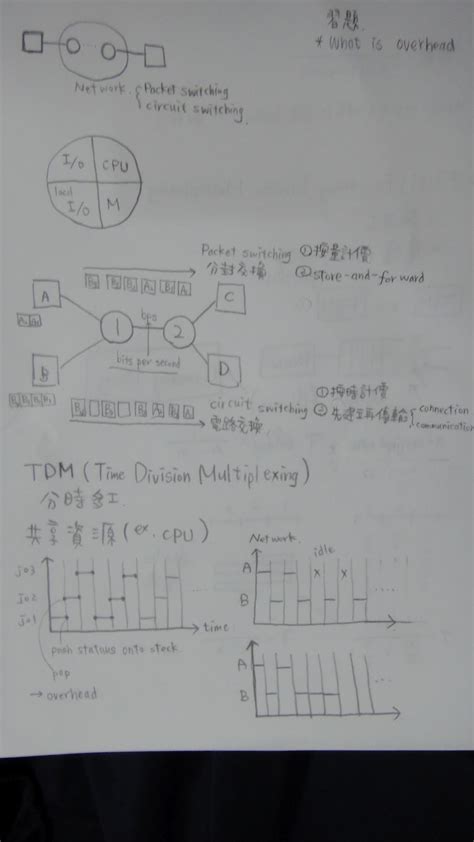 習題.
* What is overhead
Network. { Packet switching
circuit switching.
I/O CPU
local I/O M
Packet switching ①按量計價
分封交換 ②store-and-forward
A
C
bps
1 2
bits per second
B
D
circuit switching ①按時計價
電路交換. ②先建立再傳輸 { connection
communication
TDM (Time Division Multiplexing)
分時多工
共享資源 (ex. CPU)
Network.
idle
job3
job2
job1
time
A
x x
B
push status onto stack.
pop
→ overhead
A
B